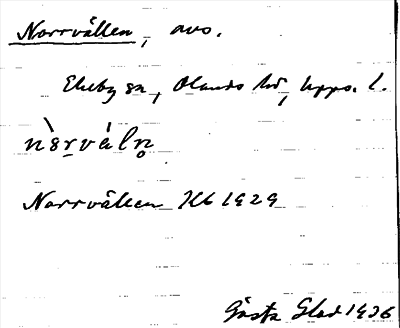 Norrvällen, avs.
Ekeby sn, Olands hd, Upps. l.
Norrvällen Kb 1929
Gösta Glad 1926